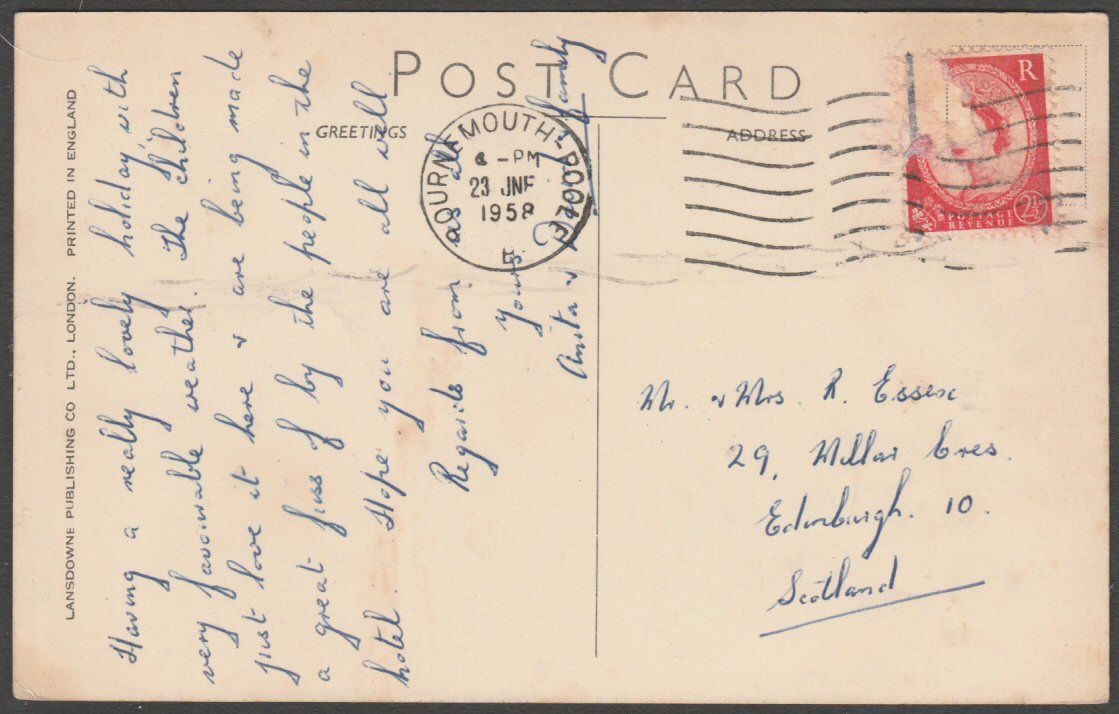 POST CARD
GREETINGS
ADDRESS
LANSDOWNE PUBLISHING CO LTD., LONDON. PRINTED IN ENGLAND
Having a really lovely holiday with
very favourable weather. The children
just love it here & are being made
a great fuss of by the people in the
hotel. Hope you are all well
Regards from us all
Yours
Anita & family
BOURNEMOUTH-POOLE
- PM
23 JNE
1958
E
R
POSTAGE
REVENUE
2½
Mr. & Mrs R. Essex
29, Millar Cres.
Edinburgh. 10.
Scotland